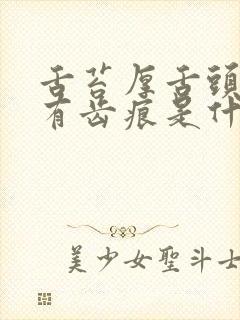 舌苔厚舌頭
有齿痕是什
美少女聖斗士